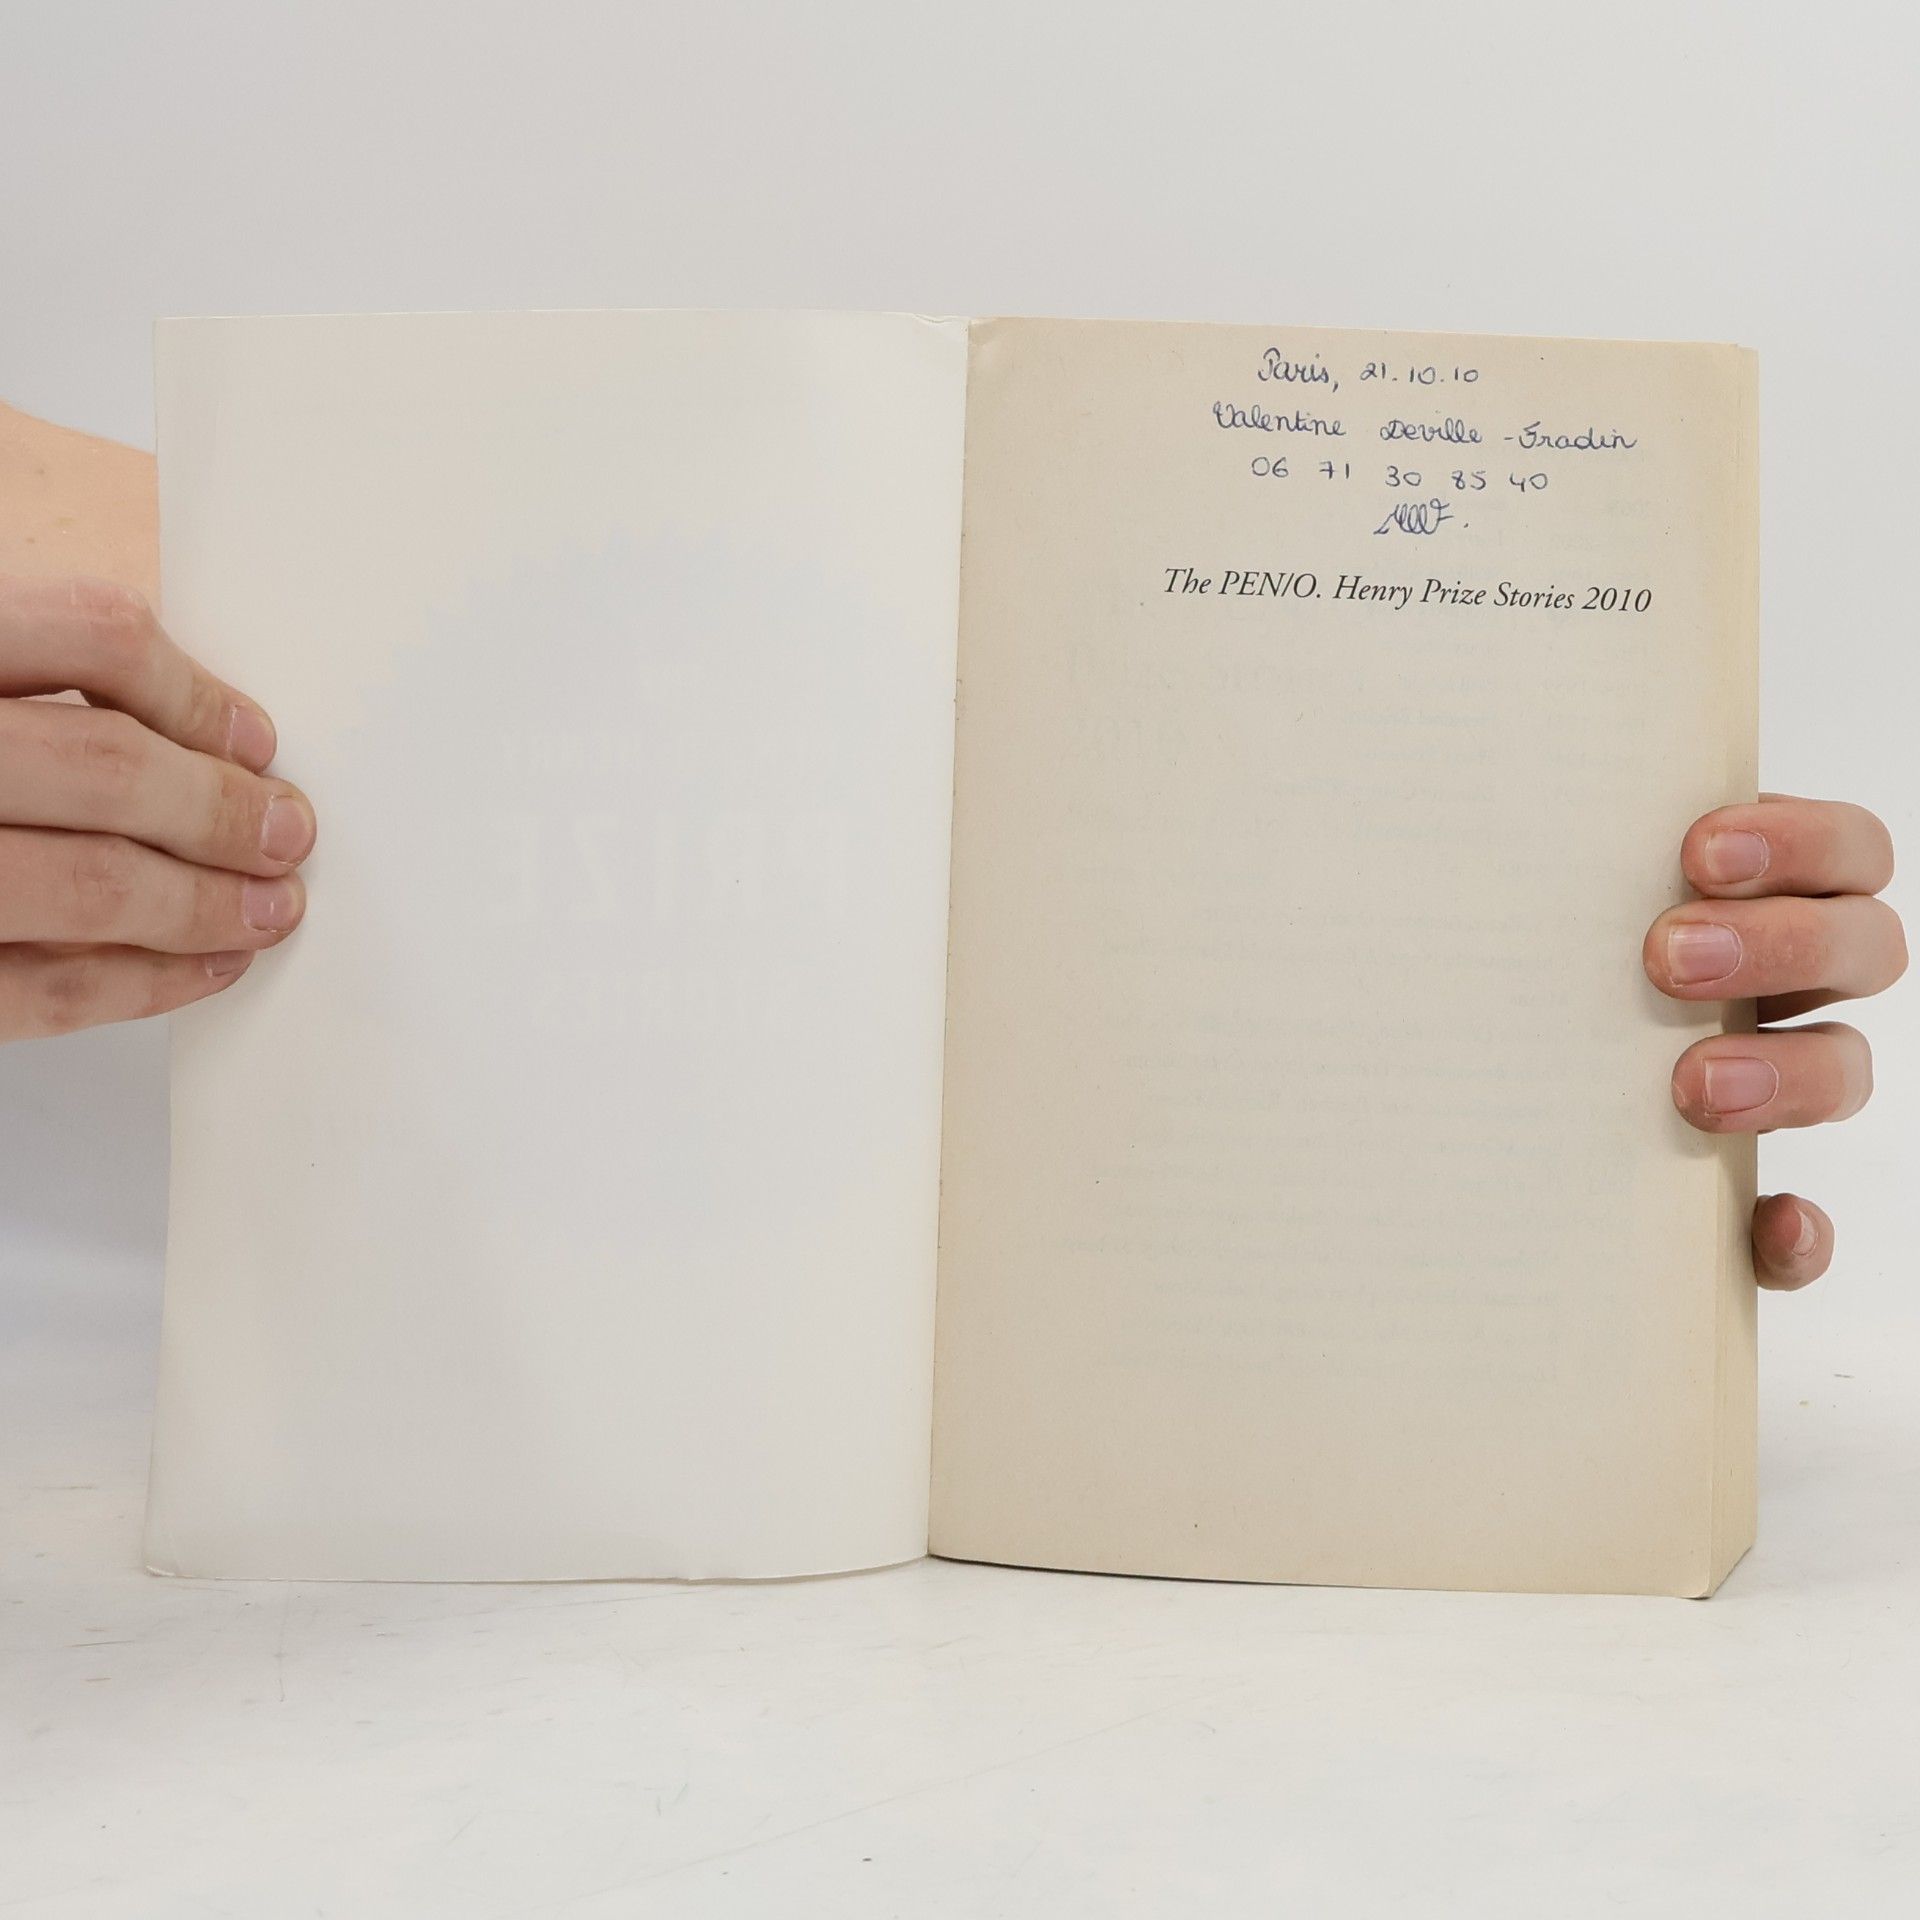 Paris, 21.10.10
Valentine Deville-Fradin
06 71 30 85 40
The PEN/O. Henry Prize Stories 2010